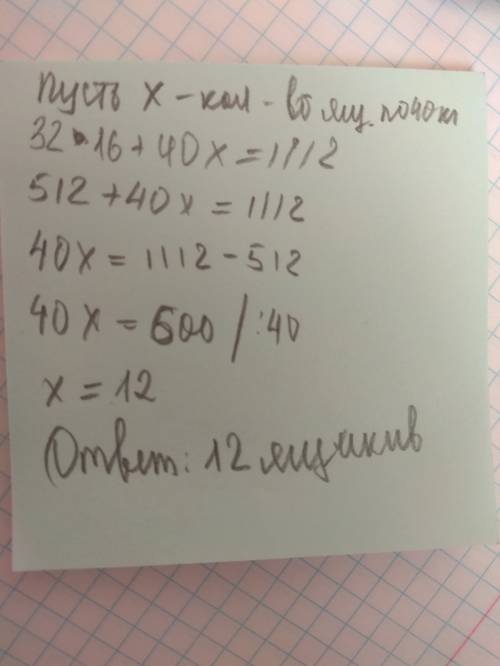 Пусть x - кол - во ящ. по 40 кг
32 • 16 + 40x = 1112
512 + 40x = 1112
40x = 1112 - 512
40x = 600 / :40
x = 12
Ответ: 12 ящикив